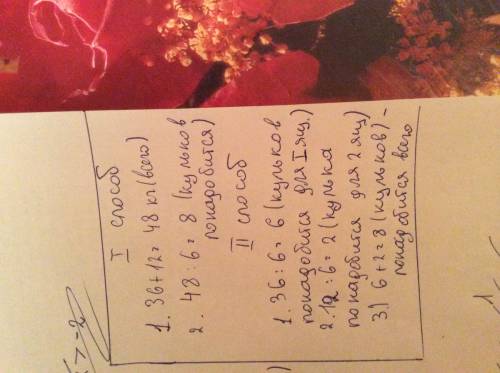 I способ
1. 36+12=48 кг (всего)
2. 48:6=8 (кульков
понадобится)
II способ
1. 36:6=6 (кульков
понадобится для I ящ.)
2. 12:6=2 (кулька
понадобится для 2 ящ)
3.) 6+2=8 (кульков) –
понадобится всего